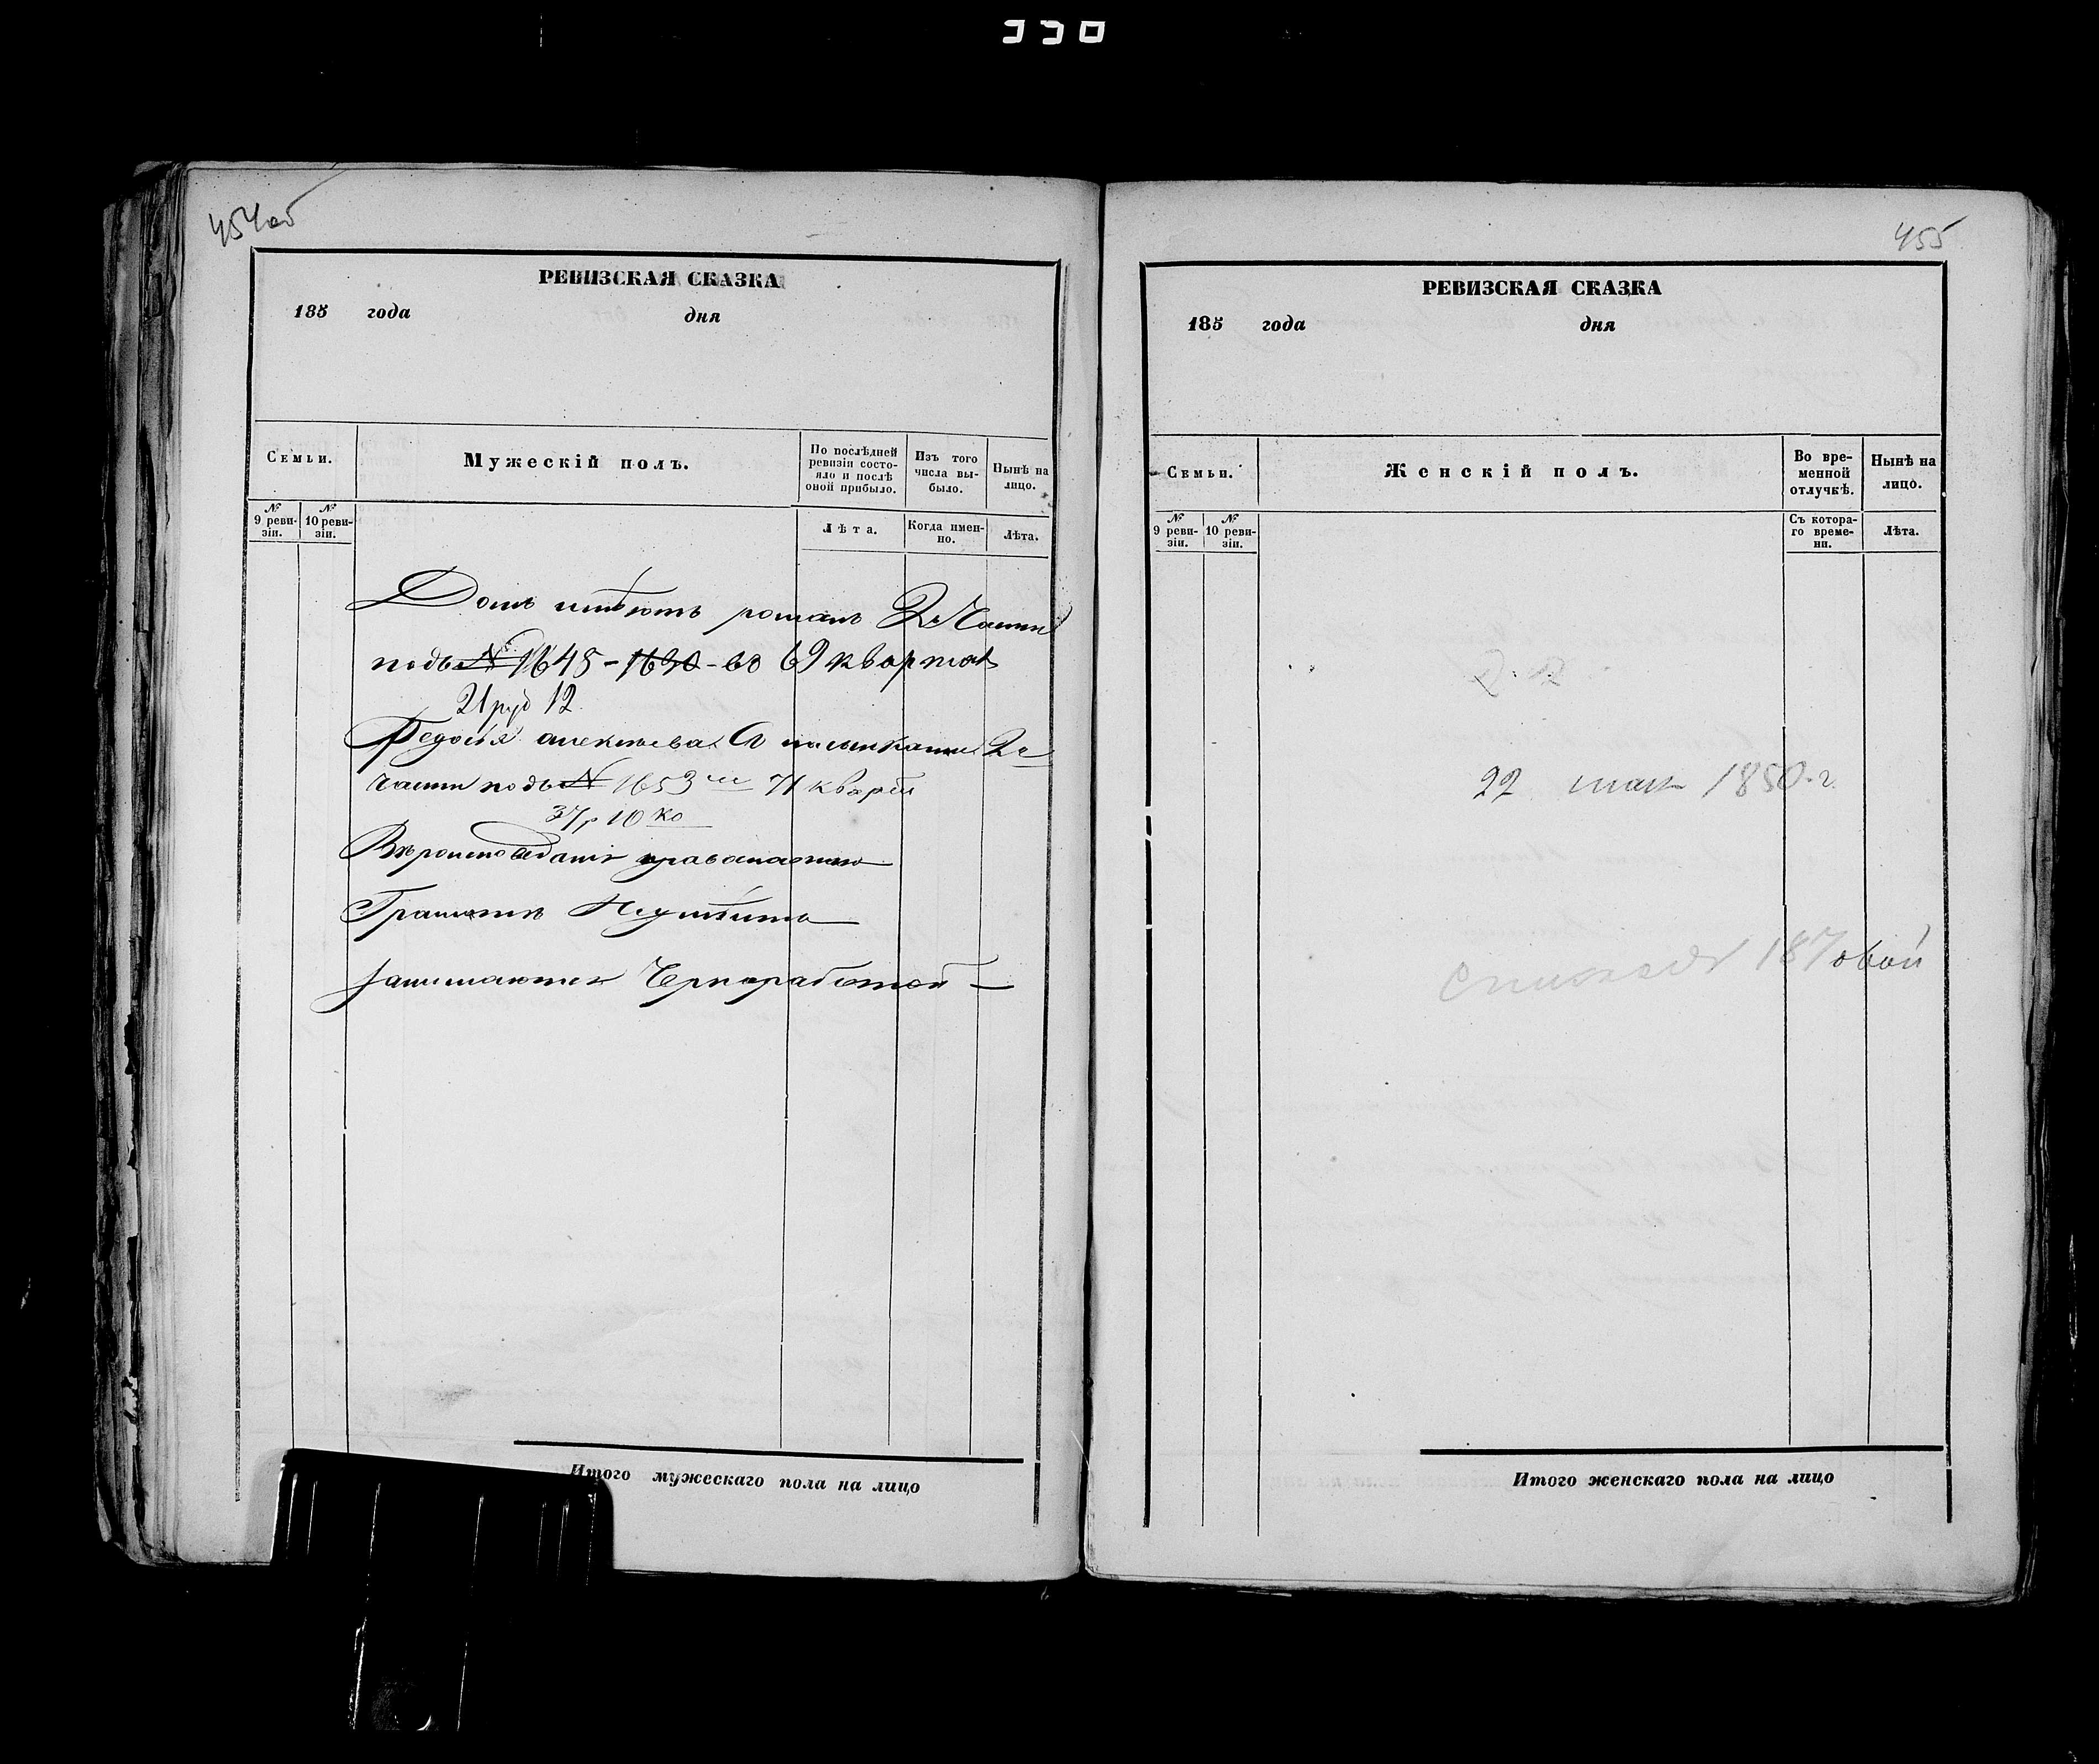 454об
РЕВИЗСКАЯ СКАЗКА
185 года дня
Семьи.
Мужескій полъ.
По послѣдней ревизіи состояло и послѣ оной прибыло.
Изъ того числа выбыло.
Нынѣ на лицо.
№ 9 ревизіи.
№ 10 ревизіи.
Лѣта.
Когда именно.
Лѣта.
Домъ имѣютъ 2й Части
подъ № 1648 - 1630 - во 69 квартал
21 руб 12
Федосья алексѣева 2й
части подъ № 1653 71 кварта
37р 10 ко
Вѣроисповѣданія православнаго
Грамотѣ Неумѣютъ
занимаются Чернаработой
Итого мужескаго пола на лицо
455
РЕВИЗСКАЯ СКАЗКА
185 года дня
Семьи.
Женскій полъ.
Во временной отлучкѣ.
Нынѣ на лицо.
№ 9 ревизіи.
№ 10 ревизіи.
Съ котораго времени.
Лѣта.
22 мая 1850 г.
187
Итого женскаго пола на лицо